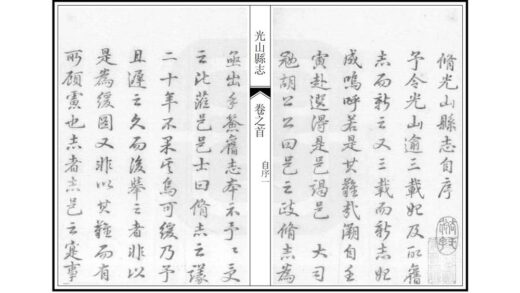 脩光山縣志自序
予令光山逾三載始及取舊
志而新之又三載而新志始
成嗚呼若是其難哉溯自壬
寅赴選得是邑謁邑 大司
胡公公曰邑之政脩志為
光山縣志
卷之首
自序一
亟出手舊志本示予予受
之比蒞邑邑士曰脩志之議
二十年不果矣烏可緩乃予
且遲之久而後舉之者非以
是為緩圖又非以其難而有
所顧慮也志者志邑之寔事